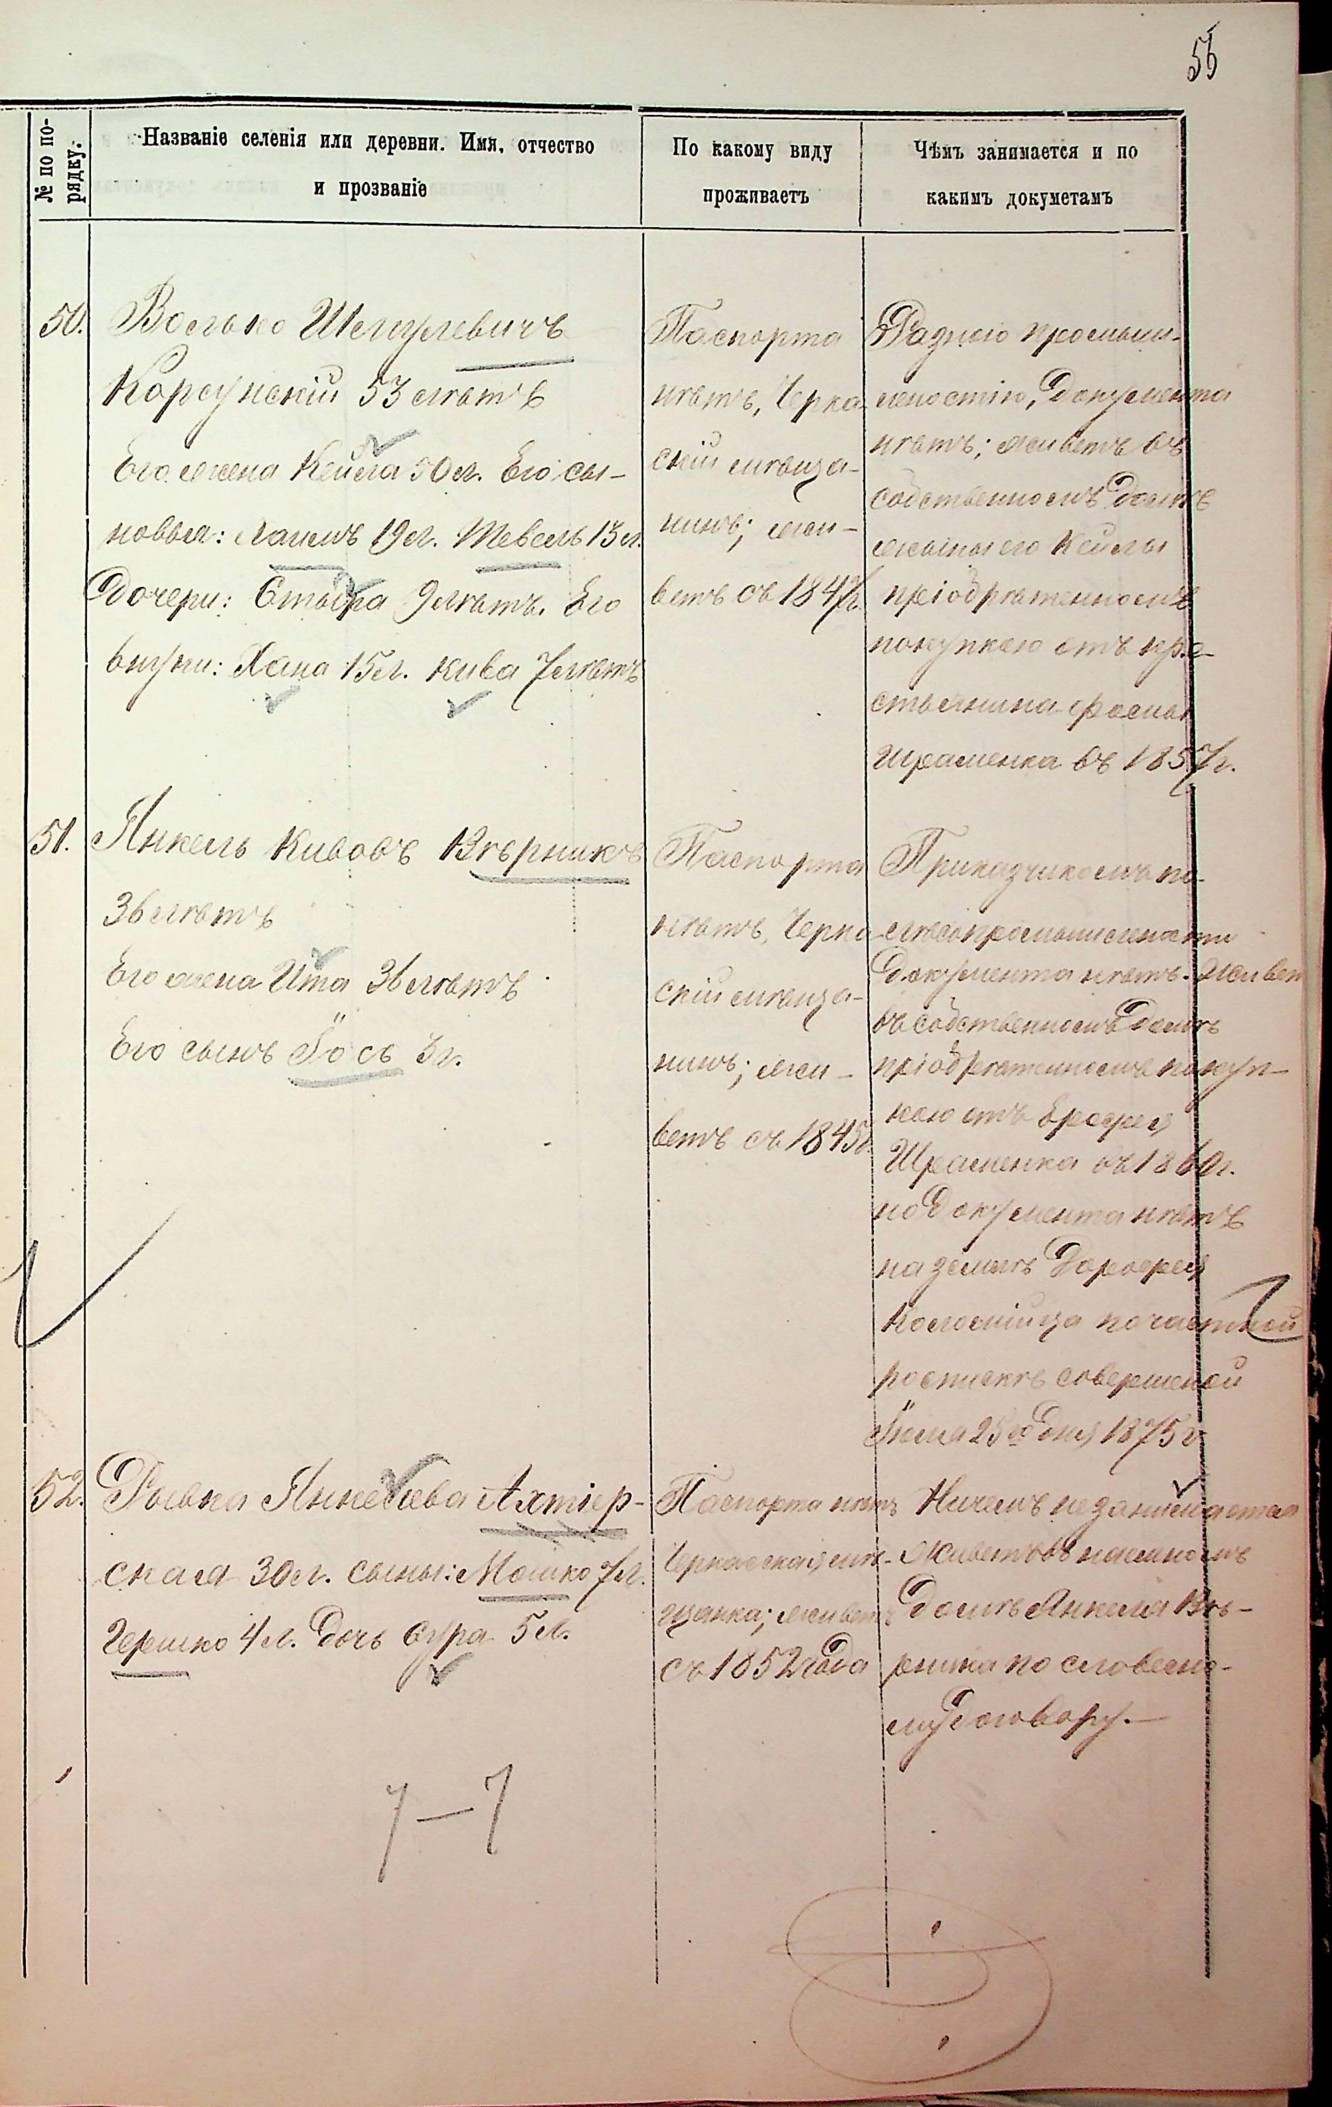 55
№ по по-
рядку.
Названіе селенія или деревни. Имя, отчество
и прозваніе
По какому виду
проживаетъ
Чѣмъ занимается и по
какимъ докуметамъ
50.
Волько Шмулевичъ
Корсунскій 53 лѣтъ
Его жена Кейла 50 л. Его сы-
новья: Хаимъ 19 л. Тевель 15 л.
Дочери: Стыра 9 лѣтъ. Его
внуки: Хана 15 л. Кива 7 лѣтъ
Паспорта
нѣтъ, Черка
скій мѣща-
нинъ; жи-
ветъ съ 1847г.
Разною промыш-
леностію, документа
нѣтъ; живетъ въ
собственномъ домѣ
жены его Кейлы
пріобрѣтенномъ
покупкою отъ кре-
стьянина Фомы
Шраменка въ 1857г.
51.
Янкель Кивовъ Вѣрникъ
36 лѣтъ
Его жена Ита 36 лѣтъ
Его сынъ Іось 3 г.
Паспорта
нѣтъ, Черка
скій мѣща-
нинъ; жи-
ветъ съ 1845г.
Приказчикомъ по
лѣсопромышлености
документа нѣтъ. Живет
въ собственномъ домѣ
пріобрѣтенномъ покуп-
кою отъ Ерофея
Шраменка въ 1860г.
но документа нѣтъ
на землѣ Дорофея
Коломійца по частной
роспискѣ совершеной
Іюля 25го дня 1875 г
52.
Рывка Янкелева Ахтіер-
ская 30 л. сыны: Мошко 7 л.
Гершко 4 л. дочь Сура 5 л.
Паспорта нѣтъ
Черкаская мѣ-
щанка; живетъ
съ 1852 года
Ничемъ незанимается
Живетъ въ наемномъ
домѣ Янкеля Вѣ-
рника по словесно-
му договору.—
7 — 7